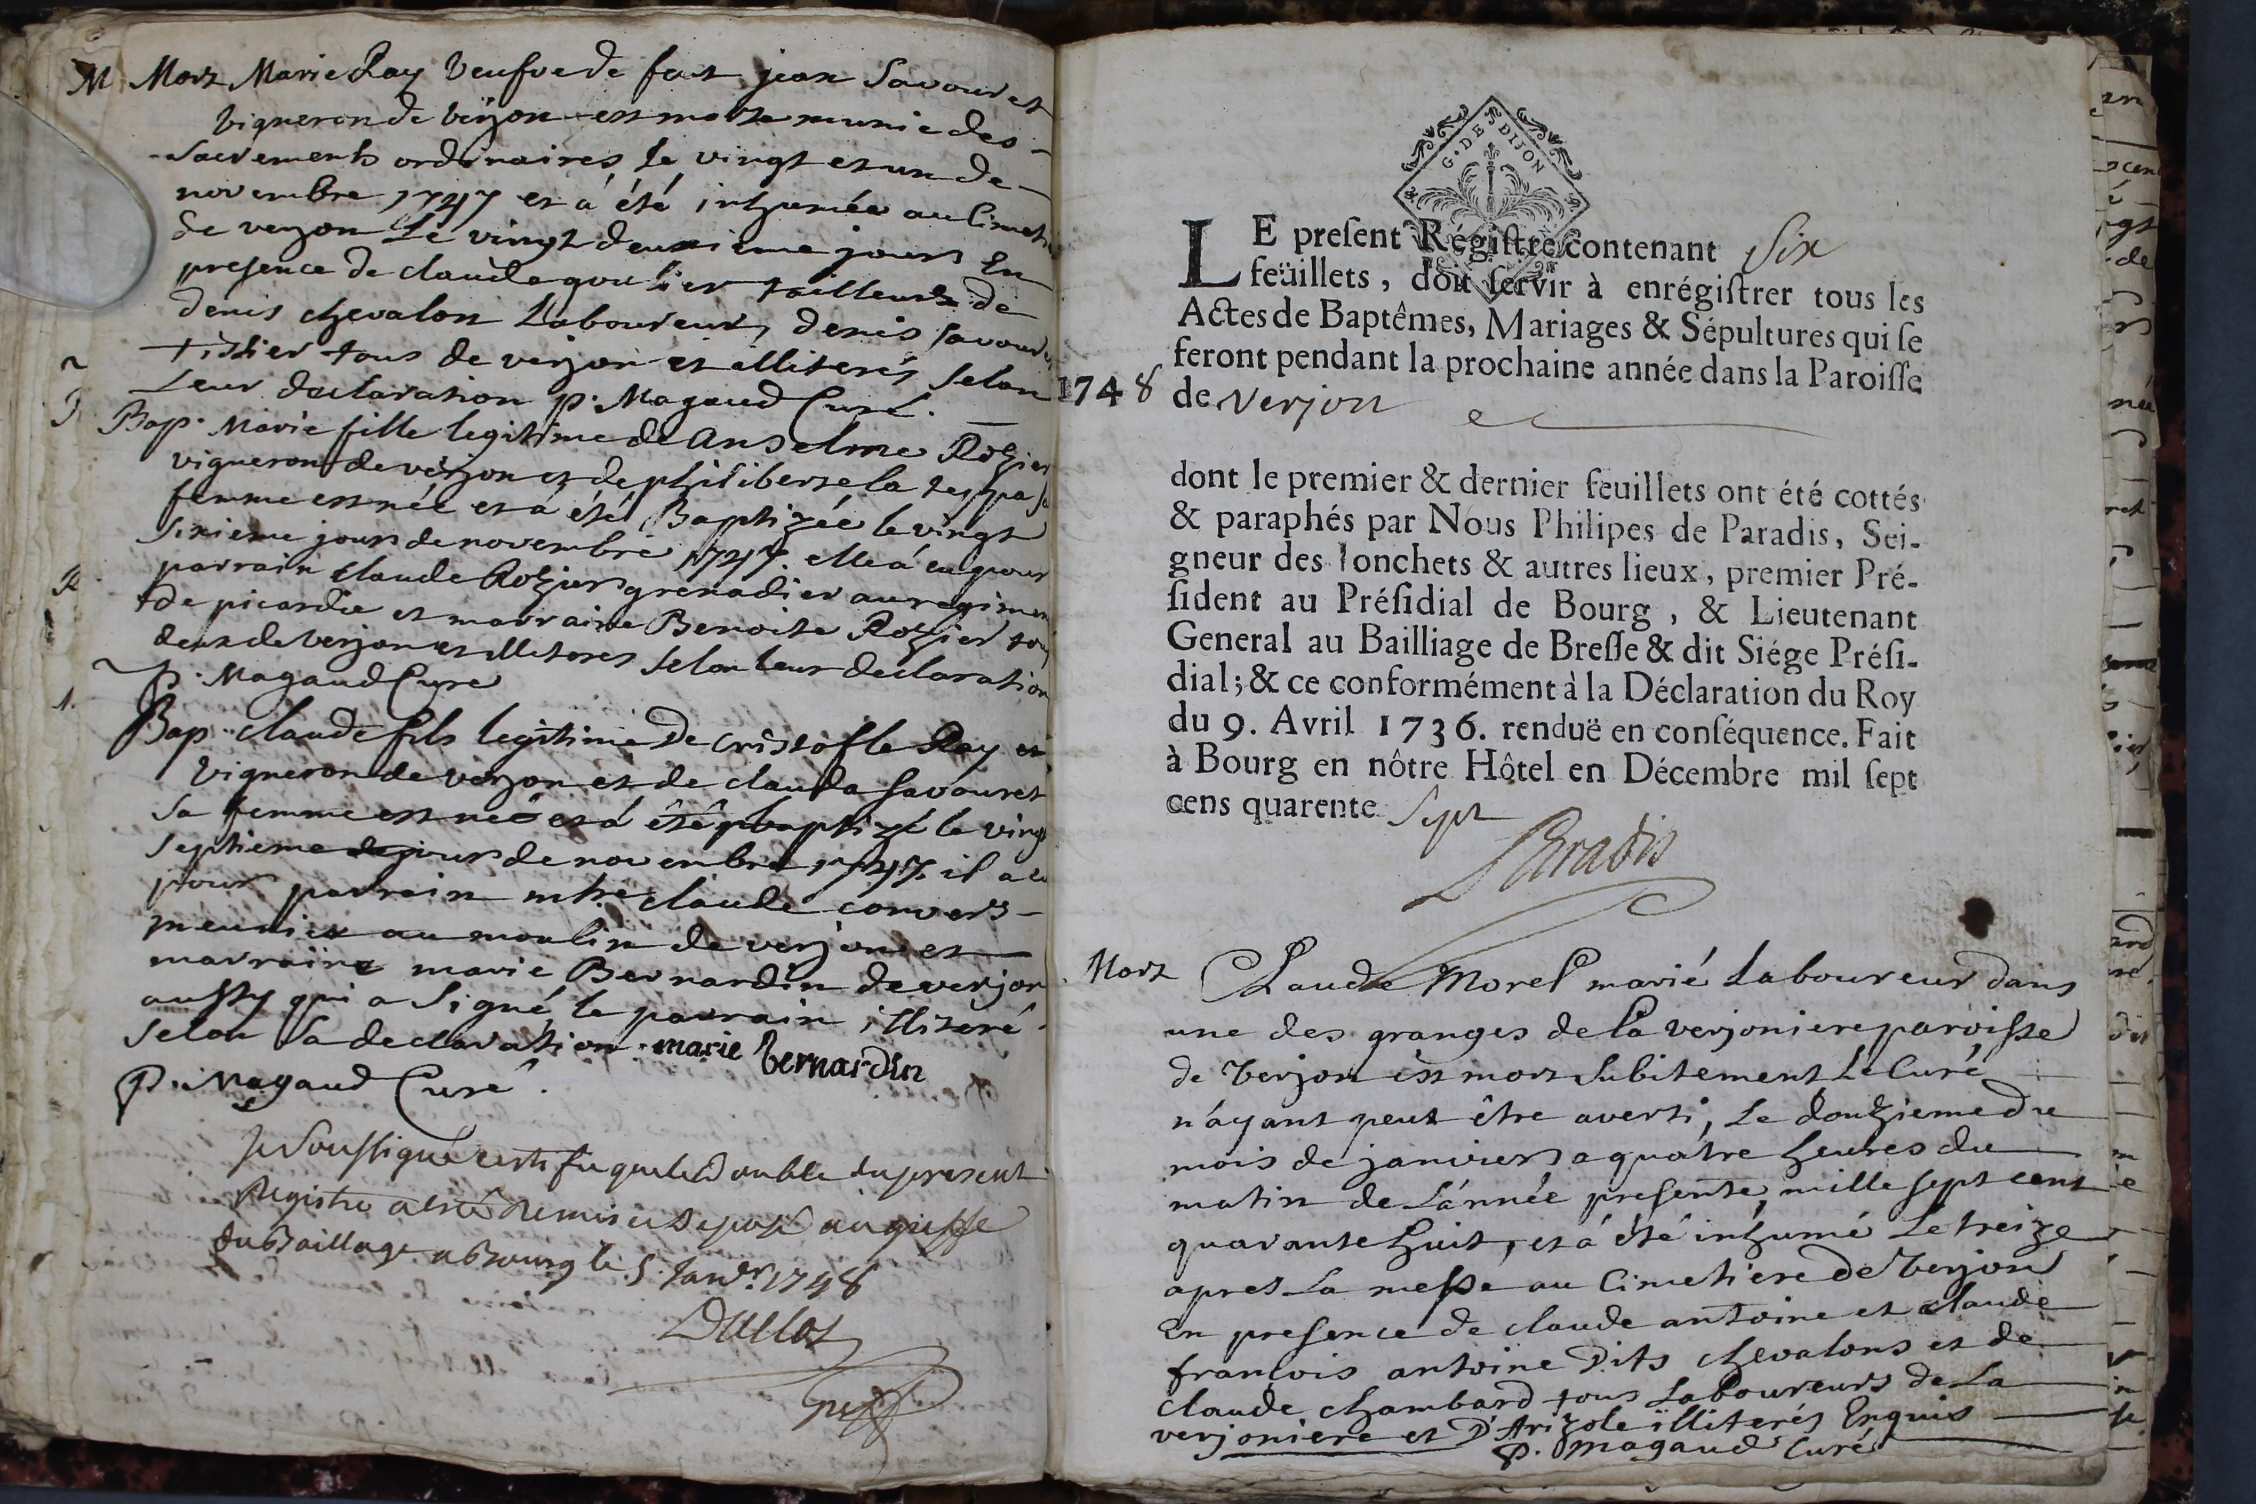 M Mort Marie Ray Veufve de feut jean Savouret
vigneron de verjon est morte munie des
sacrements ordinaires le vingt et un de
novembre 1747 et á été inhumée au Cimeti
de verjon Le vingt deuxieme jours En
presence de claude goulier tailleurs de
denis chevalon Laboureur, denis savouret
tissier tous de verjon et illiterés selon
Leur declaration p. Magaud Curé.
Bap. Marie fille legitime de anselme Rozier
vigneron de verjon et de philiberte la teyssa
femme est née et á été Baptizée le vingt
sixieme jours de novembre 1747. elle á eu pour
parrain claude Rozier grenadier au regimen
de picardie et marraine Benoite Rozier tous
deux de verjon et illiteres selon leur declaration
p. Magaud Curé
Bap. claude fils legitime de cristofle Ray
vigneron de verjon et de clauda savouret
sa femme est né et á été baptizé le vingt
septieme jours de novembre 1747. il a eu
pour parrain mtre claude convers
meunier au moulin de verjon et
marraine marie Bernardin de verjon
aussy qui a signé, le parrain illiteré
selon sa declaration. marie bernardin
p. Magaud Curé.
Je Soussigné certifie que le double du present
Registre a esté Remis et deposé au greffe
du Baillage a Bourg le 5. Janer. 1748
Duclot
Greff
G. DE DIJON
LE present Régistre contenant Six
feüillets, doit servir à enrégistrer tous les
Actes de Baptêmes, Mariages & Sépultures qui se
feront pendant la prochaine année dans la Paroisse
1748 de Verjon
dont le premier & dernier feuillets ont été cottés
& paraphés par Nous Philipes de Paradis, Sei-
gneur des Jonchets & autres lieux, premier Pré-
sident au Présidial de Bourg, & Lieutenant
General au Bailliage de Bresse & dit Siége Prési-
dial; & ce conformément à la Déclaration du Roy
du 9. Avril 1736. renduë en conséquence. Fait
à Bourg en nôtre Hôtel en Décembre mil sept
cens quarente Sept
Paradis
Mort Claude Morel marié Laboureur dans
une des granges de la verjoniere paroisse
de Verjon est mort subitement Le Curé
n'áyant peut être averti, Le douzieme du
mois de janviers a quatre heures du
matin de L'année presente, mille sept cent
quarante huit, et á été inhumé Le treize
apres La messe au Cimetiere de Verjon
En presence de claude antoine et claude
francois antoine Dits chevalons et de
claude chambard tous Laboureurs de La
verjoniere et D'Arizole illiterés Enquis
p. Magaud Curé